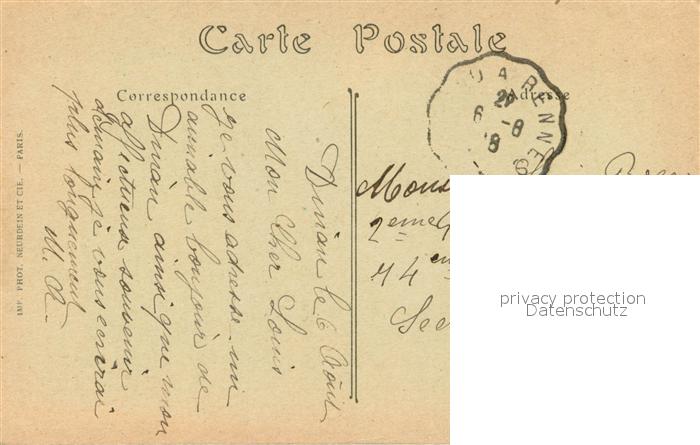 Carte Postale
Correspondance
Adresse
Dinan le 6 Août
Mon Cher Louis
Je vous adresse un
aimable bonjour de
Dinan ainsi que mon
affectueux souvenir
demain je vous ecrirai
plus longuement
M. R.
Mons
2eme
14em
Sec
ARENNES
6 -8
8
IMP. PHOT. NEURDEIN ET CIE. — PARIS.
privacy protection
Datenschutz